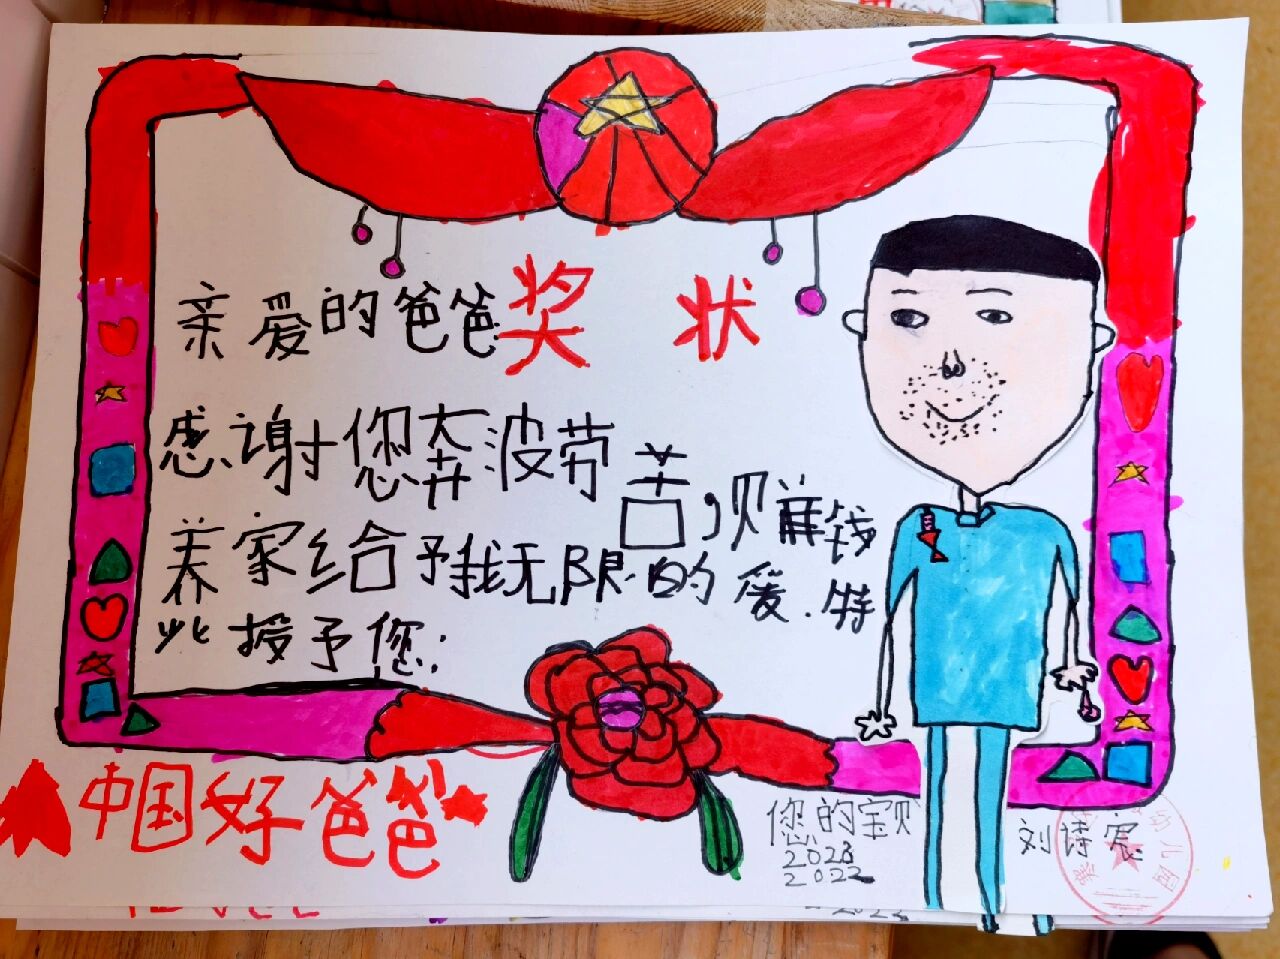 奖状
亲爱的爸爸
感谢您奔波劳
苦,贝兼钱
养家给予我无限的爱.特
此授予您:
中国好爸爸
您的宝贝
刘诗宸
2023
2022